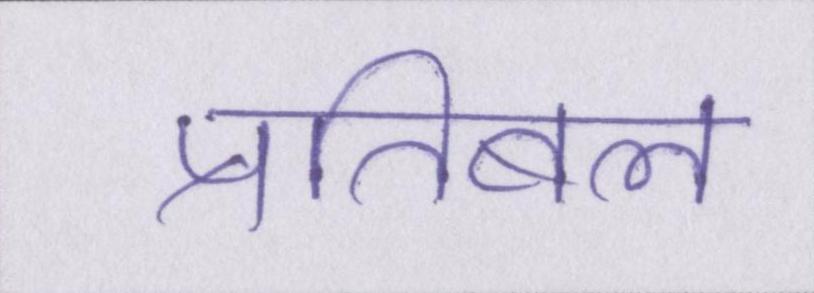 प्रतिबल